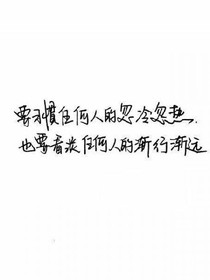 要习惯任何人的忽冷忽热.
也要看淡任何人的渐行渐远